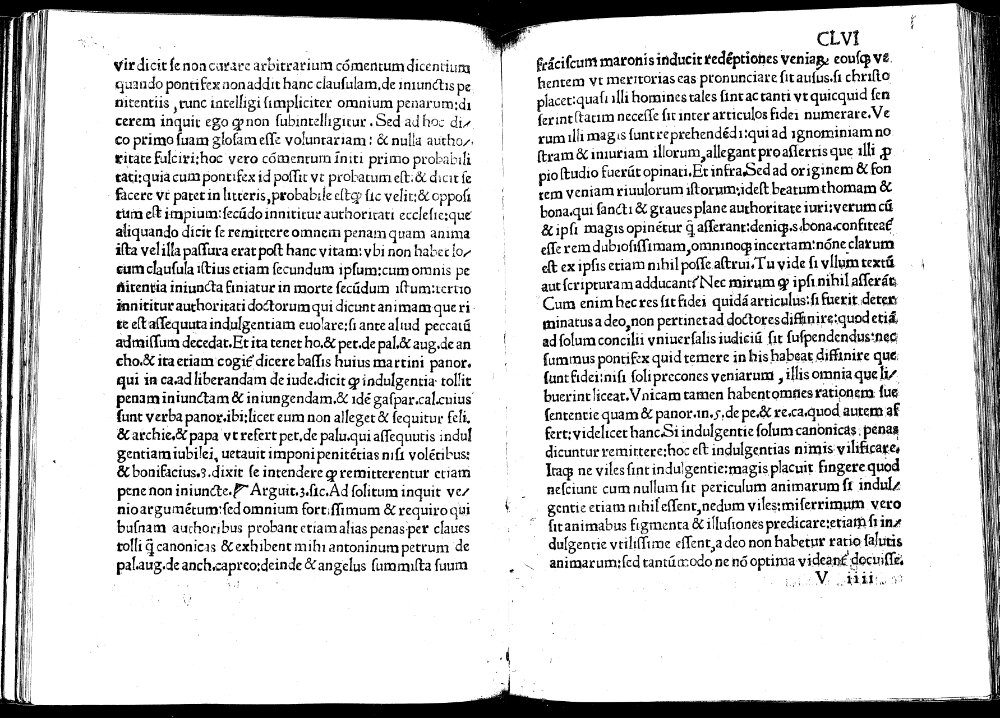 vir dicit se non curare arbitrarium cōmentum dicentium
quando pontifex non addit hanc clausulam, de iniunctis pe
nitentiis, tunc intelligi simpliciter omnium penarum: di
cerem inquit ego ꝙ non subintelligitur. Sed ad hoc di/
co primo suam glosam esse voluntariam: & nulla autho/
ritate fulciri: hoc vero cōmentum īniti primo probabili
tati: quia cum pontifex id possit vt probatum est: & dicit se
facere vt patet in litteris, probabile estꝙ sic velit: & opposi
tum est impium: secūdo innititur authoritati ecclesie: que
aliquando dicit se remittere omnem penam quam anima
ista vel illa passura erat post hanc vitam: vbi non habet lo/
cum clausula istius etiam secundum ipsum: cum omnis pe
nitentia iniuncta finiatur in morte secūdum istum: tertio
innititur authoritati doctorum qui dicunt animam que ri
te est assequuta indulgentiam euolare: si ante aliud peccatū
admissum decedat. Et ita tenet ho. & pet. de pal. & aug. de an
cho. & ita etiam cogiť dicere bassis huius martini panor.
qui in ca. ad liberandam de iude. dicit ꝙ indulgentia tollit
penam iniunctam & iniungendam, & idē gaspar. cal. cuius
sunt verba panor. ibi: licet eum non alleget & sequitur feli.
& archie. & papa vt refert pet. de palu. qui assequutis indul
gentiam iubilei, uetauit imponi penitētias nisi volētibus:
& bonifacius. 3. dixit se intendere ꝙ remitterentur etiam
pene non iniuncte. ¶ Arguit. 3. sic. Ad solitum inquit ve/
nio argumētum: sed omnium fortissimum & requiro qui
busnam authoribus probant etiam alias penas per claues
tolli q̄ canonicas & exhibent mihi antoninum petrum de
pal. aug. de anch. capreo: deinde & angelus summista suum
CLVI
frāciscum maronis inducit redēptiones veniaꝝ eousꝙ ve
hentem vt meritorias eas pronunciare sit ausus. si christo
placet: quasi illi homines tales sint ac tanti vt quicquid sen
serint statim necesse sit inter articulos fidei numerare. Ve
rum illi magis sunt reprehendēdi: qui ad ignominiam no
stram & iniuriam illorum, allegant pro assertis que illi ꝓ
pio studio fuerūt opinati. Et infra. Sed ad originem & fon
tem veniam riuulorum istorum: idest beatum thomam &
bona. qui sancti & graues plane authoritate iuri: verum cū
& ipsi magis opinētur q̄ asserant: deniꝙ. s. bona. confiteať
esse rem dubiosissimam, omninoꝙ incertam: nōne clarum
est ex ipsis etiam nihil posse astrui. Tu vide si vllum textū
aut scripturam adducant? Nec mirum ꝙ ipsi nihil asserāt.
Cum enim hec res sit fidei quidā articulus: si fuerit deter
minatus a deo, non pertinet ad doctores diffinire: quod etiā
ad solum concilii vniuersalis iudiciū sit suspendendus: nec
summus pontifex quid temere in his habeat diffinire que
sunt fidei: nisi soli precones veniarum, illis omnia que li/
buerint liceat. Vnicam tamen habent omnes rationem sue
sententie quam & panor. in. 5. de pe. & re. ca. quod autem af
fert: videlicet hanc. Si indulgentie solum canonicas penas
dicuntur remittere: hoc est indulgentias nimis vilificare.
Itaꝙ ne viles sint indulgentie: magis placuit fingere quod
nesciunt cum nullum sit periculum animarum si indul/
gentie etiam nihil essent, nedum viles: miserrimum vero
sit animabus figmenta & illusiones predicare: etiam si in/
dulgentie vtilissime essent, adeo non habetur ratio salutis
animarum: sed tantūmodo ne nō optima videanť docuisse.
V iiii